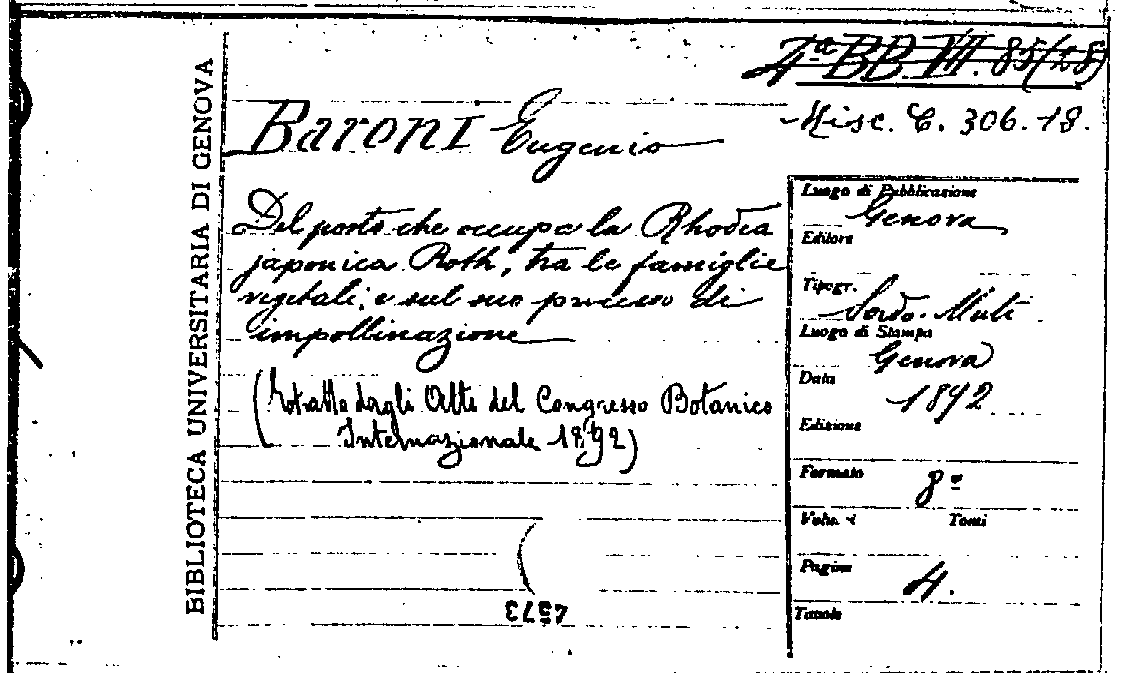 4ª BB VII. 85(28)
Misc. C. 306. 18.
BIBLIOTECA UNIVERSITARIA DI GENOVA
Baroni Eugenio
Del posto che occupa la Rhodea
japonica Roth, tra le famiglie
vegetali, e sul suo processo di
impollinazione
(Estratto dagli Atti del Congresso Botanico
Internazionale 1892)
Luogo di Pubblicazione
Genova
Editore
Tipogr.
Sordo-Muti
Luogo di Stampa
Genova
Data
1892
Edizione
Formato
8º
Volu. i Tomi
Pagine
4.
Tavole